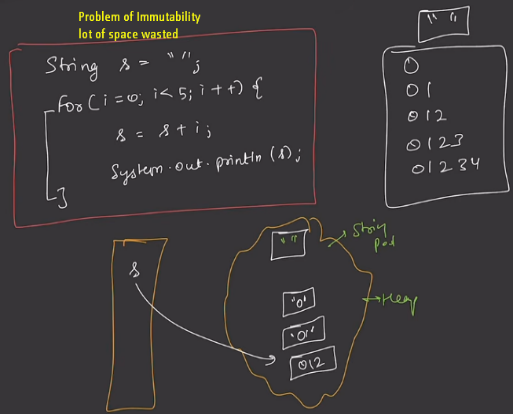 Problem of Immutability
lot of space wasted
String s = "";
for(i=0; i<5; i++) {
s = s+i;
System.out.println(s);
}
" "
0
01
012
0123
01234
s
" "
String pool
"0"
"01"
012
Heap